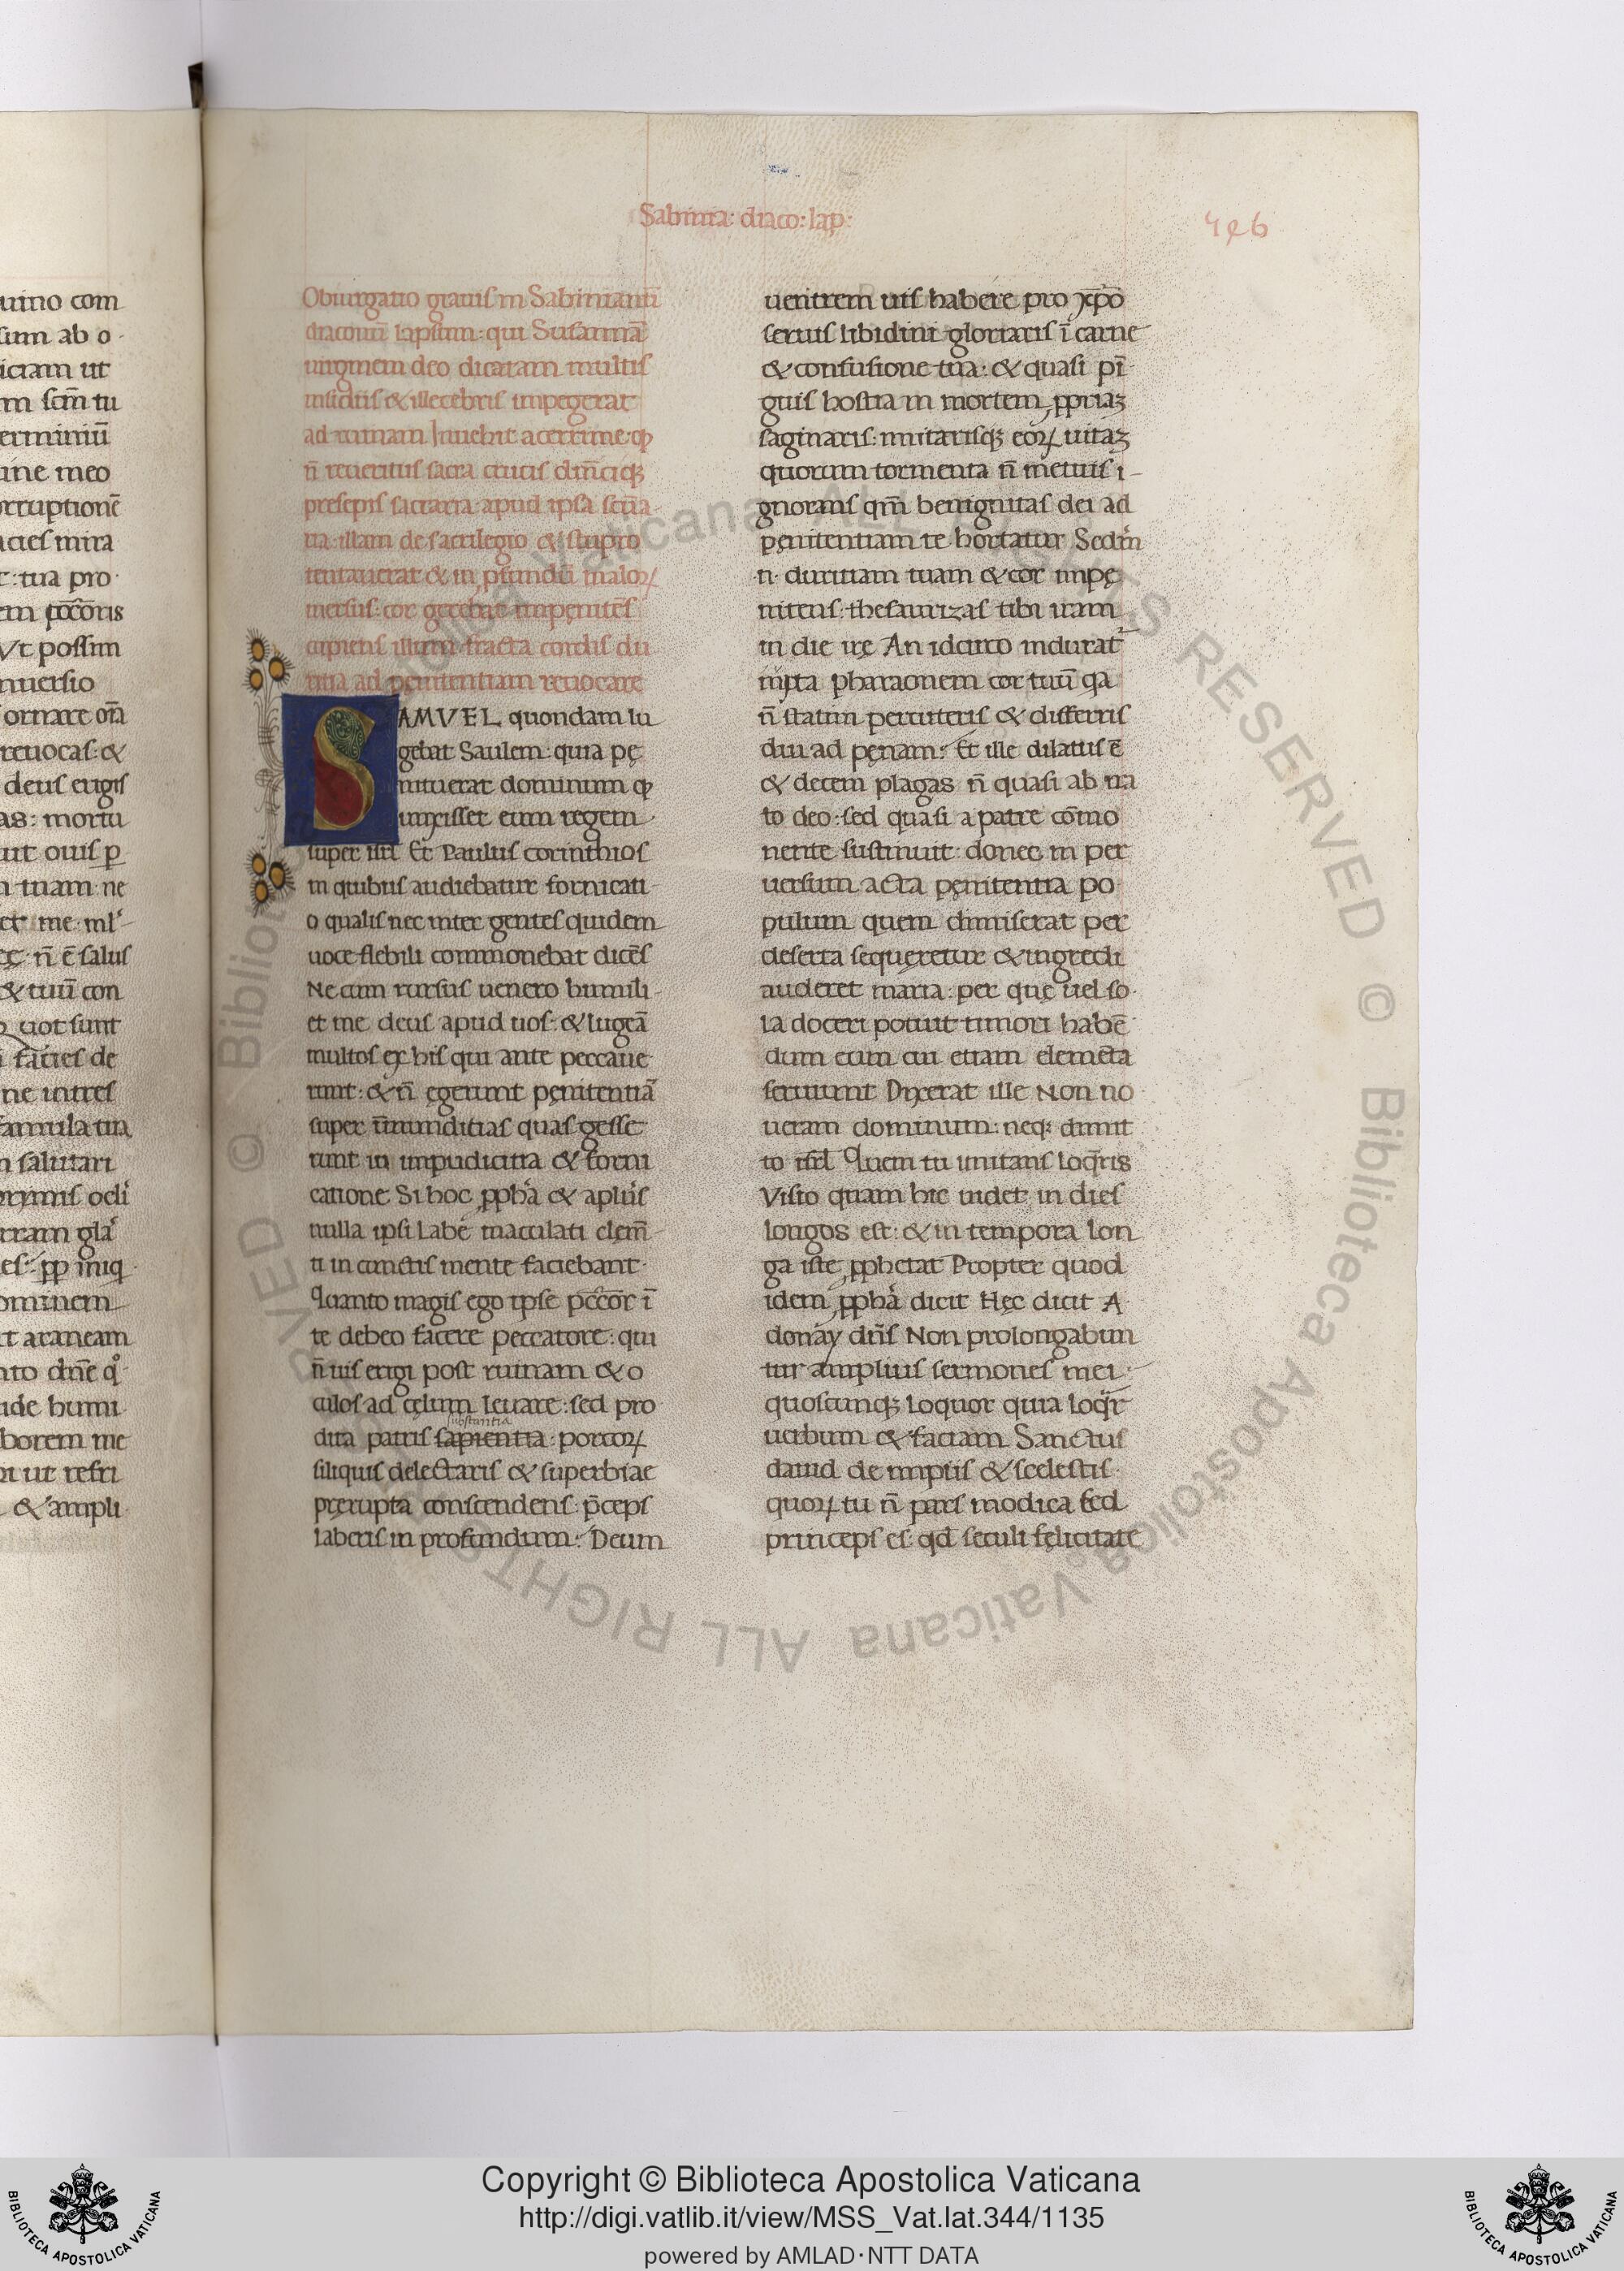 Sabinia: diaco: lap:
496
uino com
sum ab o
iciam ut
m scm̄ tu
erminiū
ine meo
orruptionē
acies mira
t: tua pro
em p̄cc̄oris
Vt possim
nuersio
ornare om̄ia
reuocas: &
deus erigis
as: mortu
ut ouis p̄
n tuam: ne
n̄ ē salus
& tuū con
uot sunt
facies de
ne intres
famula tua
n salutari
ominem
t araneam
ide humi
borem me
ut refri
& ampli
Obiurgatio grauis in Sabinianū
diaconū lapsum: qui Susannā
uirginem deo dicatam multis
insidiis & illecebris impegerat
ad ruinam Inuehit acerrime: qp
n̄ reueritus sacra crucis dn̄iciqꝫ
presepis sacraria apud ipsa sctūa
ria: illam de sacrilegio & stupro
tentauerat & in ꝓfundū maloꝝ
mersus: cor gerebat impęnitēs
cupiens illum fracta cordis du
ritia ad pęnitentiam reuocare
SAMVEL quondam lu
gebat Saulem: quia pę
nituerat dominum qp
unxisset eum regem
super isrl Et Paulus corinthios
in quibus audiebatur fornicati
o qualis nec inter gentes quidem
uoce flebili commonebat dicēs
Ne cum rursus uenero humili
et me deus apud uos: & lugeā
multos ex his qui ante peccaue
runt: & n̄ ęgerunt pęnitentiā
super inmunditias quas gesse
runt in impudicitia & forni
catione Si hoc ꝓpha & aplus
nulla ipsi labe maculati clem̄
ti in cunctis mente faciebant
Quanto magis ego ipse pcc̄or ī
te debeo facere peccatore: qui
n̄ uis erigi post ruinam & o
culos ad cęlum leuare: sed pro
substantia
dita patris sapientia: porcoꝝ
siliquis delectaris & superbiae
pręrupta conscendens: p̄ceps
laberis in profundum: Deum
uentrem uis habere pro xp̄o
seruis libidini gloriaris ī carne
& confusione tua: & quasi pī
guis hostia in mortem ꝓpriaꝫ
saginaris: imitarisqꝫ eoꝝ uitaꝫ
quorum tormenta n̄ metuis i
gnorans qm̄ benignitas dei ad
pęnitentiam te hortatur Sedm̄
n duritiam tuam & cor impę
nitens: thesaurizas tibi iram
in die irę An idcirco indurat
iuxta pharaonem cor tuū qa
n̄ statim percuteris & differris
diu ad pęnam: Et ille dilatus ē
& decem plagas n̄ quasi ab ira
to deo: sed quasi a patre cōmo
nente sustinuit: donec in per
uersum acta pęnitentia po
pulum quem dimiserat per
deserta sequęretur & ingredi
auderet maria: per quę uel so
la doceri potuit timori habē
dum eum cui etiam elemēta
seruiunt Dixerat ille Non no
ueram dominum: neqꝫ dimit
to isrl Quem tu imitans loq̄ris
Visio quam hic uidet in dies
longos est: & in tempora lon
ga iste ꝓphetat Propter quod
idem ꝓpha dicit Hęc dicit A
donay dn̄s Non prolongabun
tur amplius sermones mei
quoscunqꝫ loquor quia loqr̄
uerbum & faciam Sanctus
dauid de impiis & scelestis
quoꝝ tu n̄ pars modica sed
princeps es: qd seculi fęlicitate
Copyright © Biblioteca Apostolica Vaticana
http://digi.vatlib.it/view/MSS_Vat.lat.344/1135
powered by AMLAD·NTT DATA
BIBLIOTECA APOSTOLICA VATICANA
BIBLIOTECA APOSTOLICA VATICANA
© Biblioteca Apostolica Vaticana ALL RIGHTS RESERVED © Biblioteca Apostolica Vaticana ALL RIGHTS RESERVED